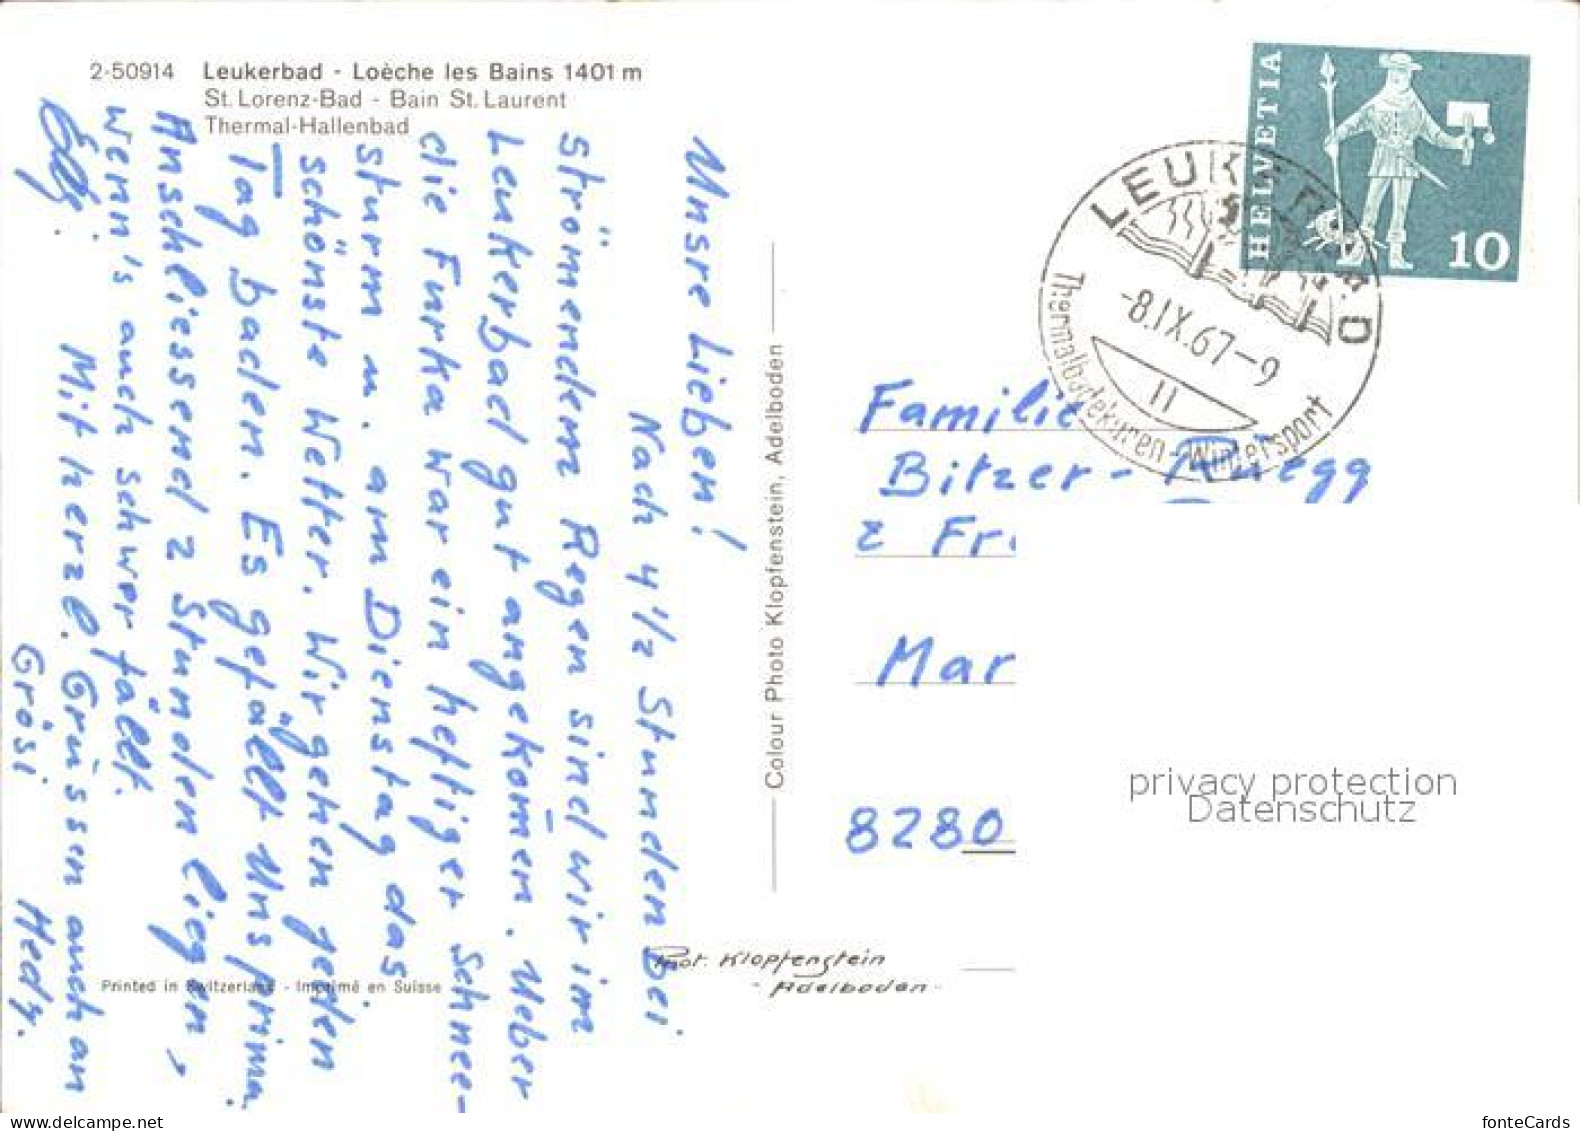 2-50914 Leukerbad - Loèche les Bains 1401 m
St. Lorenz-Bad - Bain St. Laurent
Thermal-Hallenbad
Unsre Lieben!
Nach 4 1/2 Stunden bei
strömendem Regen sind wir im
Leukerbad gut angekom̄en. Ueber
die Furka war ein heftiger Schnee-
sturm u. am Dienstag das
schönste Wetter. Wir gehen jeden
Tag baden. Es gefällt uns prima.
Anschliessend 2 Stunden liegen,
wenn's auch schwer fällt.
Mit herzl. Grüssen auch an
Elly.
Grösi Hedy.
Colour Photo Klopfenstein, Adelboden
Printed in Switzerland - Imprimé en Suisse
Phot. Klopfenstein
- Adelboden -
HELVETIA
10
LEUKERBAD
-8.IX.67-9
11
Thermalbadekuren - Wintersport
Familie
Bitzer-
z Fr
Mar
8280
privacy protection
Datenschutz
www.delcampe.net
fonteCards